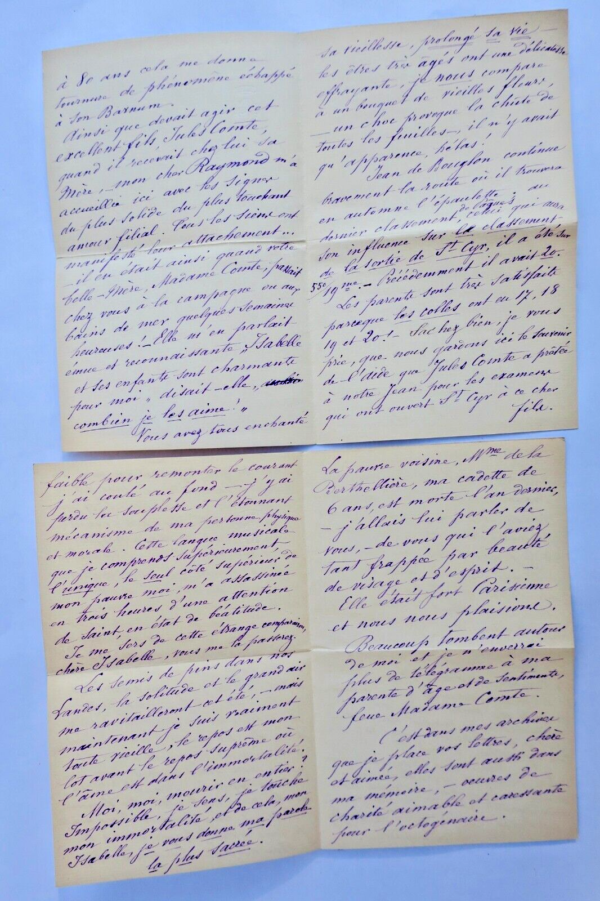 à 80 ans cela me donne
tournure de phénomène échappé
à son Barnum.
Ainsi que devait agir cet
excellent fils, Jules Comte,
quand il recevait chez lui sa
Mère – mon cher Raymond m'a
accueillie ici avec les signes
du plus solide, du plus touchant
amour filial. Tous les siens ont
manifesté leur attachement...
– il en était ainsi quand votre
belle-Mère, Madame Comte, passait
chez vous à la campagne ou aux
bains de mer quelques semaines
heureuses! – Elle m'en parlait
émue et reconnaissante "Isabelle
et ses enfants sont charmants
pour moi", disait-elle,
combien je les aime!"
Vous avez tous enchanté
sa vieillesse, prolongé sa vie –
les êtres très agés ont une délicatesse
effrayante, je nous compare
à un bouquet de vieilles fleurs,
– un choc provoque la chute de
toutes les feuilles – il n'y avait
qu'apparence, hélas!
Jean de Bouglon continue
bravement la route où il trouvera
en automne l'épaulette; au
dernier classement, celui qui aura
son influence sur le classement
de la sortie de St Cyr, il a été sur
19me – Précédemment il avait 20.
Les parents sont très satisfaits
parceque les colles ont eu 17, 18
19 et 20! – Sachez bien, je vous
prie, que nous gardons ici le souvenir
de l'aide que Jules Comte a prêtée
à notre Jean pour les examens
qui ont ouvert St Cyr à ce cher
fils.
faible pour remonter le courant
j'ai coulé au fond – j'y ai
perdu les souplesse et l'étonnant
mécanisme de ma personne physique
et morale. Cette langue musicale
que je comprends supérieurement,
l'unique, le seul côté supérieur de
mon pauvre moi, m'a assassinée
en trois heures d'une attention
de saint, en état de béatitude.
Je me sers de cette étrange comparaison,
chère Isabelle, vous me la passerez.
Les semis de pins dans nos
Landes, la solitude et le grand air
me ravitailleront cet été, – mais
maintenant je suis vraiment
toute vieille, le repos est mon
lot avant le repos suprême où
l'âme est dans l'immortalité!
Moi, moi, mourir en entier?
Impossible, je sens, je touche
mon immortalité et de cela, mon
Isabelle, je vous donne ma parole
la plus sacrée.
La pauvre voisine, Mme de la
Berthellière, ma cadette de
6 ans, est morte l'an dernier,
– j'allais lui parler de
vous, – de vous qui l'aviez
tant frappée par beauté
de visage et d'esprit. –
Elle était fort Parisienne
et nous nous plaisions.
Beaucoup tombent autour
de moi et je n'enverrai
plus de télégramme à ma
parente d'âge et de sentiments,
feue Madame Comte.
C'est dans mes archives
que je place vos lettres, chère
et aimée, elles sont aussi dans
ma mémoire, – œuvres de
charité aimable et caressante
pour l'octogénaire.